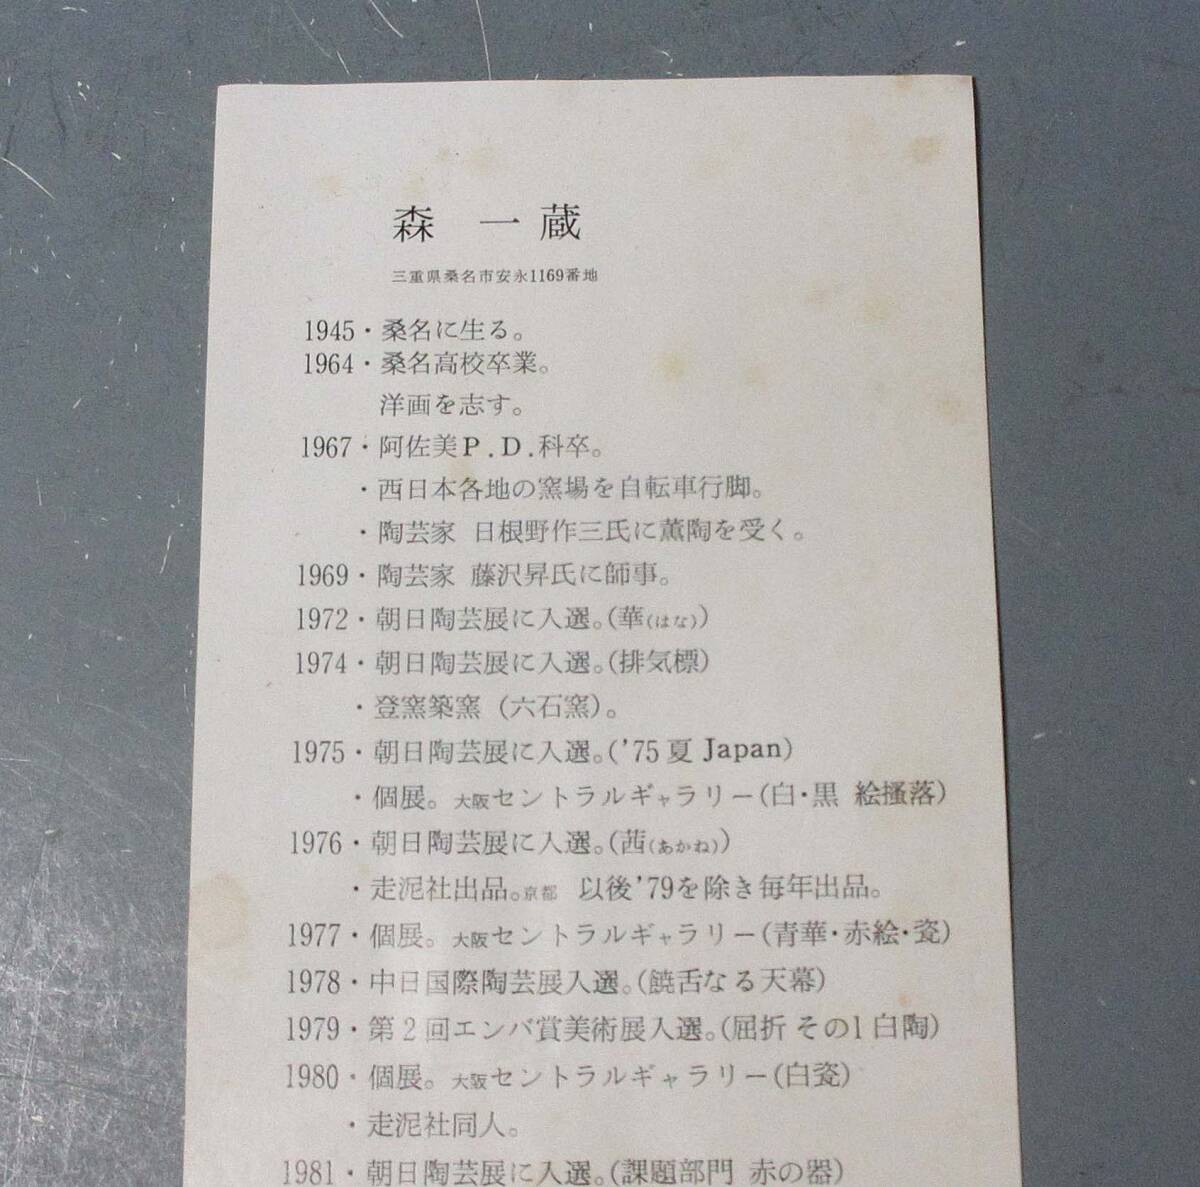 森 一 蔵
三重県桑名市安永1169番地
1945・桑名に生る。
1964・桑名高校卒業。
洋画を志す。
1967・阿佐美P.D.科卒。
・西日本各地の窯場を自転車行脚。
・陶芸家 日根野作三氏に薫陶を受く。
1969・陶芸家 藤沢昇氏に師事。
1972・朝日陶芸展に入選。(華(はな))
1974・朝日陶芸展に入選。(排気標)
・登窯築窯 (六石窯)。
1975・朝日陶芸展に入選。('75夏 Japan)
・個展。大阪セントラルギャラリー(白・黒 絵掻落)
1976・朝日陶芸展に入選。(茜(あかね))
・走泥社出品。京都 以後'79を除き毎年出品。
1977・個展。大阪セントラルギャラリー(青華・赤絵・瓷)
1978・中日国際陶芸展入選。(饒舌なる天幕)
1979・第2回エンバ賞美術展入選。(屈折 その1 白陶)
1980・個展。大阪セントラルギャラリー(白瓷)
・走泥社同人。
1981・朝日陶芸展に入選。(課題部門 赤の器)